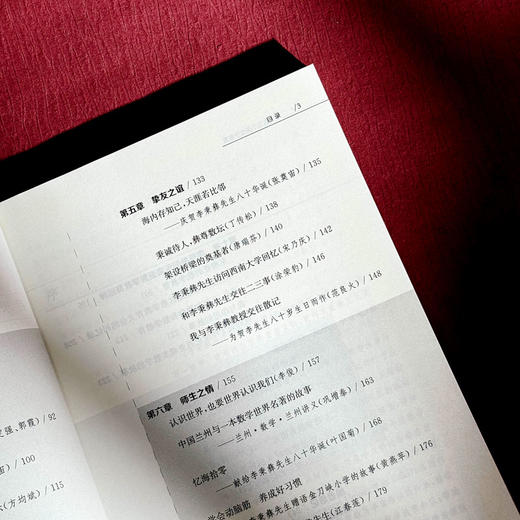 目录 /3
第五章 挚友之谊 / 133
海内存知己,天涯若比邻
——庆贺李秉彝先生八十华诞(张奠宙) / 135
秉诚待人,彝尊数坛(丁传松) / 138
架设桥梁的奠基者(唐瑞芬) / 140
李秉彝先生访问西南大学回忆(宋乃庆) / 142
和李秉彝先生交往二三事(涂荣豹) / 146
我与李秉彝教授交往散记
——为贺李先生八十岁生日而作(范良火) / 148
第六章 师生之情 / 155
认识世界,也要世界认识我们(李俊) / 157
中国兰州与一本数学世界名著的故事
——兰州·数学·兰州讲义(巩增泰) / 163
忆海拾零
——献给李秉彝先生八十华诞(叶国菊) / 168
学会动脑筋 养成好习惯
李秉彝先生赠语金刀峡小学的故事(黄燕苹) / 176
先生(江春莲) / 179
强、郭霞) / 92
宙) / 100
(方均斌) / 115